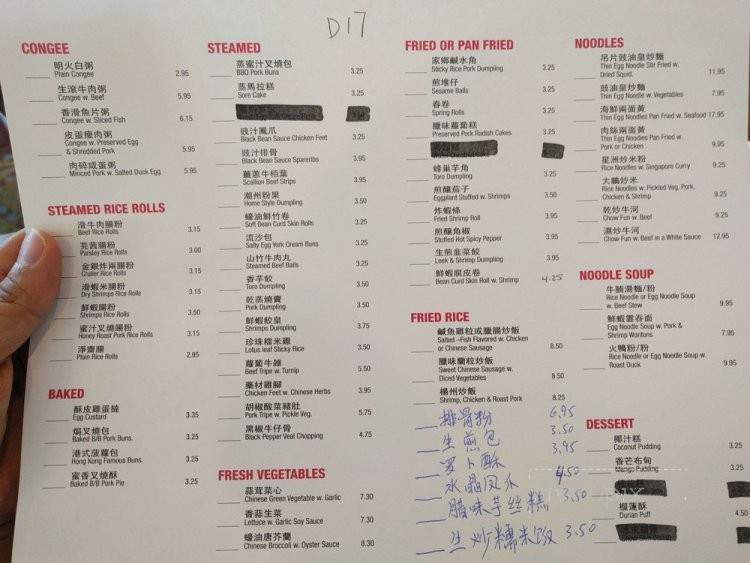 D17
CONGEE
明火白粥
Plain Congee 2.95
生滾牛肉粥
Congee w. Beef 5.95
香滑魚片粥
Congee w. Sliced Fish 6.15
皮蛋瘦肉粥
Congee w. Preserved Egg
& Shredded Pork 5.95
肉碎咸蛋粥
Minced Pork w. Salted Duck Egg 5.95
STEAMED RICE ROLLS
滑牛肉腸粉
Beef Rice Rolls 3.15
芫茜腸粉
Parsley Rice Rolls 3.00
金銀炸兩腸粉
Cruller Rice Rolls 3.15
滑蝦米腸粉
Dry Shrimps Rice Rolls 3.15
鮮蝦腸粉
Shrimps Rice Rolls 3.50
蜜汁叉燒腸粉
Honey Roast Pork Rice Rolls 3.15
淨齋腸
Plain Rice Rolls 2.95
BAKED
酥皮雞蛋撻
Egg Custard 3.25
焗叉燒包
Baked B/B Pork Buns. 3.25
港式菠蘿包
Hong Kong Famous Buns. 3.25
蜜香叉燒酥
Baked B/B Pork Pie 3.25
STEAMED
蒸蜜汁叉燒包
BBQ Pork Buns 3.25
蒸馬拉糕
Sore Cake 3.25
豉汁鳳爪
Black Bean Sauce Chicken Feet 3.25
豉汁排骨
Black Bean Sauce Spareribs 3.95
薑蔥牛柏葉
Scallion Beef Strips 3.95
潮州粉果
Home Style Dumpling 3.50
蠔油鮮竹卷
Soft Bean Curd Skin Rolls 3.25
流沙包
Salty Egg York Cream Buns 3.25
山竹牛肉丸
Steamed Beef Balls 3.25
香芋餃
Toro Dumpling 3.50
乾蒸燒賣
Pork Dumpling 3.50
鮮蝦餃皇
Shrimps Dumpling 3.75
珍珠糯米雞
Lotus leaf Sticky Rice 3.50
蘿蔔牛雜
Beef Tripe w. Turnip 5.50
藥材雞腳
Chicken Feet w. Chinese Herbs 3.95
胡椒酸菜豬肚
Pork Tripe w. Pickle Veg. 5.75
黑椒牛仔骨
Black Pepper Veal Chopping 4.75
FRESH VEGETABLES
蒜茸菜心
Chinese Green Vegetable w. Garlic 7.30
香蒜生菜
Lettuce w. Garlic Soy Sauce 7.30
蠔油唐芥蘭
Chinese Broccoli w. Oyster Sauce 8.30
FRIED OR PAN FRIED
家鄉鹹水角
Sticky Rice Pork Dumpling 3.25
煎堆仔
Sesame Balls 3.25
春卷
Spring Rolls 3.25
臘味蘿蔔糕
Preserved Pork Radish Cakes 3.25
蜂巢芋角
Toro Dumpling 3.25
煎釀茄子
Eggplant Stuffed w. Shrimps 3.50
炸蝦條
Fried Shrimp Roll 3.95
煎釀角椒
Stuffed Hot Spicy Pepper 3.95
生煎韭菜餃
Leek & Shrimp Dumpling 3.95
鮮蝦腐皮卷
Bean Curd Skin Roll w. Shrimp 4.25
FRIED RICE
鹹魚雞粒或臘腸炒飯
Salted –Fish Flavored w. Chicken
or Chinese Sausage 8.50
臘味蘭粒炒飯
Sweet Chinese Sausage w.
Diced Vegetables 8.50
楊州炒飯
Shrimp, Chicken & Roast Pork 8.25
排骨粉 6.95
生煎包 3.50
罗卜酥 3.95
水晶凤爪 4.50
腊味芋丝糕 3.50
生炒糯米饭 3.50
NOODLES
吊片豉油皇炒麵
Thin Egg Noodle Stir Fried w.
Dried Squid. 11.95
豉油皇炒麵
Thin Egg Noodle w. Vegetables 7.95
海鮮兩面黃
Thin Egg Noodles Pan Fried w. Seafood 17.95
肉絲兩面黃
Thin Egg Noodles Pan Fried w.
Pork or Chicken 9.95
星洲炒米粉
Rice Noodles w. Singapore Curry 9.25
大鵬炒米
Rice Noodles w. Pickled Veg, Pork,
Chicken & Shrimp 9.25
乾炒牛河
Chow Fun w. Beef 9.25
濕炒牛河
Chow Fun w. Beef in a White Sauce 12.95
NOODLE SOUP
牛腩湯麵/粉
Rice Noodle or Egg Noodle Soup
w. Beef Stew 9.95
鮮蝦雲吞面
Egg Noodle Soup w. Pork &
Shrimp Wontons 7.95
火鴨粉/粉
Rice Noodle or Egg Noodle Soup w.
Roast Duck 9.95
DESSERT
椰汁糕
Coconut Pudding 3.25
香芒布甸
Mango Pudding 3.25
榴蓮酥
Durian Puff 4.50